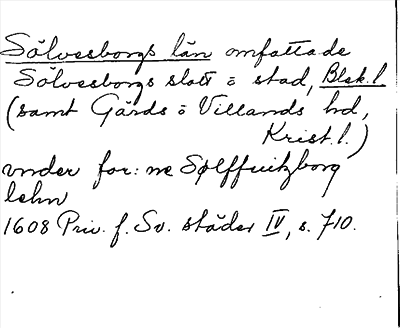 Sölvesborgs län omfattade
Sölvesborgs slott o stad, Blek.l.
(samt Gärds o Villands hd,
Krist.l.)
under for: ne Sølffuitzborg
lehn
1608 Priv. f. Sv. städer IV, s. 710.